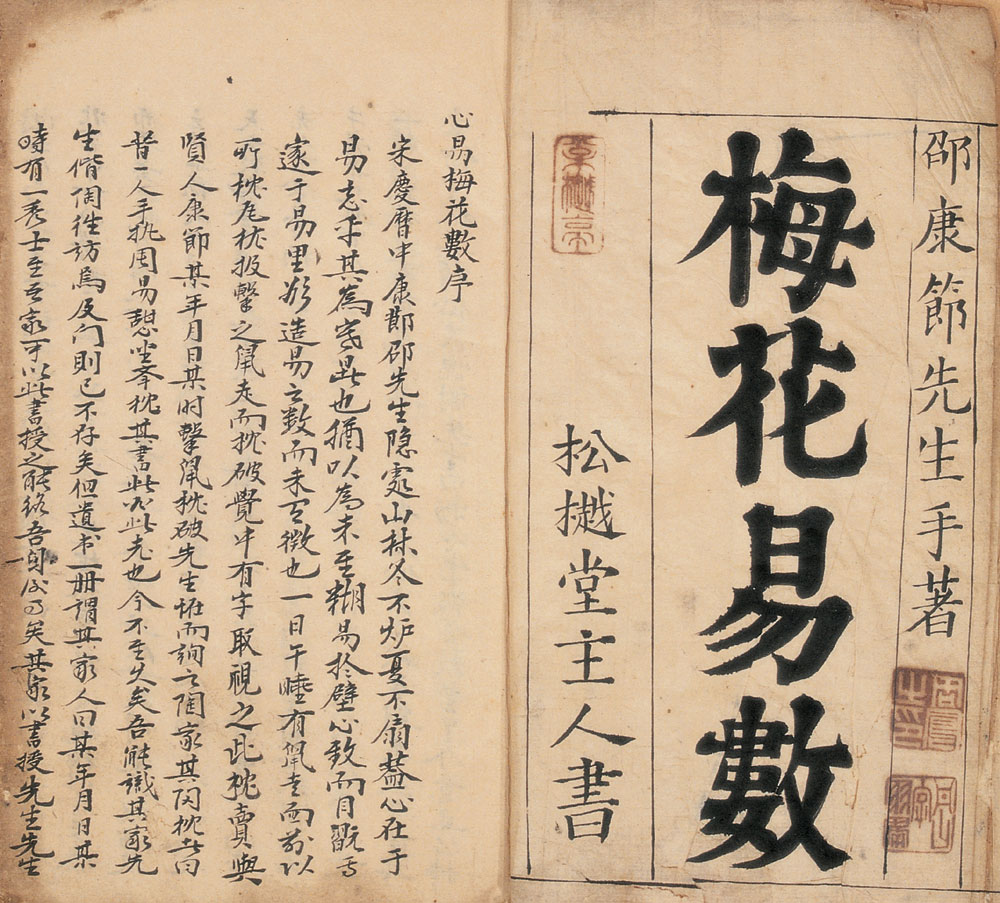 邵康節先生手著
梅花易數
松樾堂主人書
心易梅花數序
宋慶曆中康節邵先生隐處山林冬不炉夏不扇蓋心在于
易忘乎其為寒暑也猶以為未至糊易於壁心致而目翫焉
邃于易里欲造易之数而未有徵也一日午睡有鼠走而前以
所枕瓦枕投擊之鼠走而枕破覺中有字取視之此枕賣與
賢人康節某年月日某时擊鼠枕破先生怪而詢之陶家其
昔一人手执周易憩坐
枕其書此必此老也今不至久矣吾能識其家先
生偕
徃訪焉及门則已不存矣但遺书一册謂其家人曰某年月日某
時有一秀士至吾家可以此書授之能终吾身后事矣其家以書授先生先生